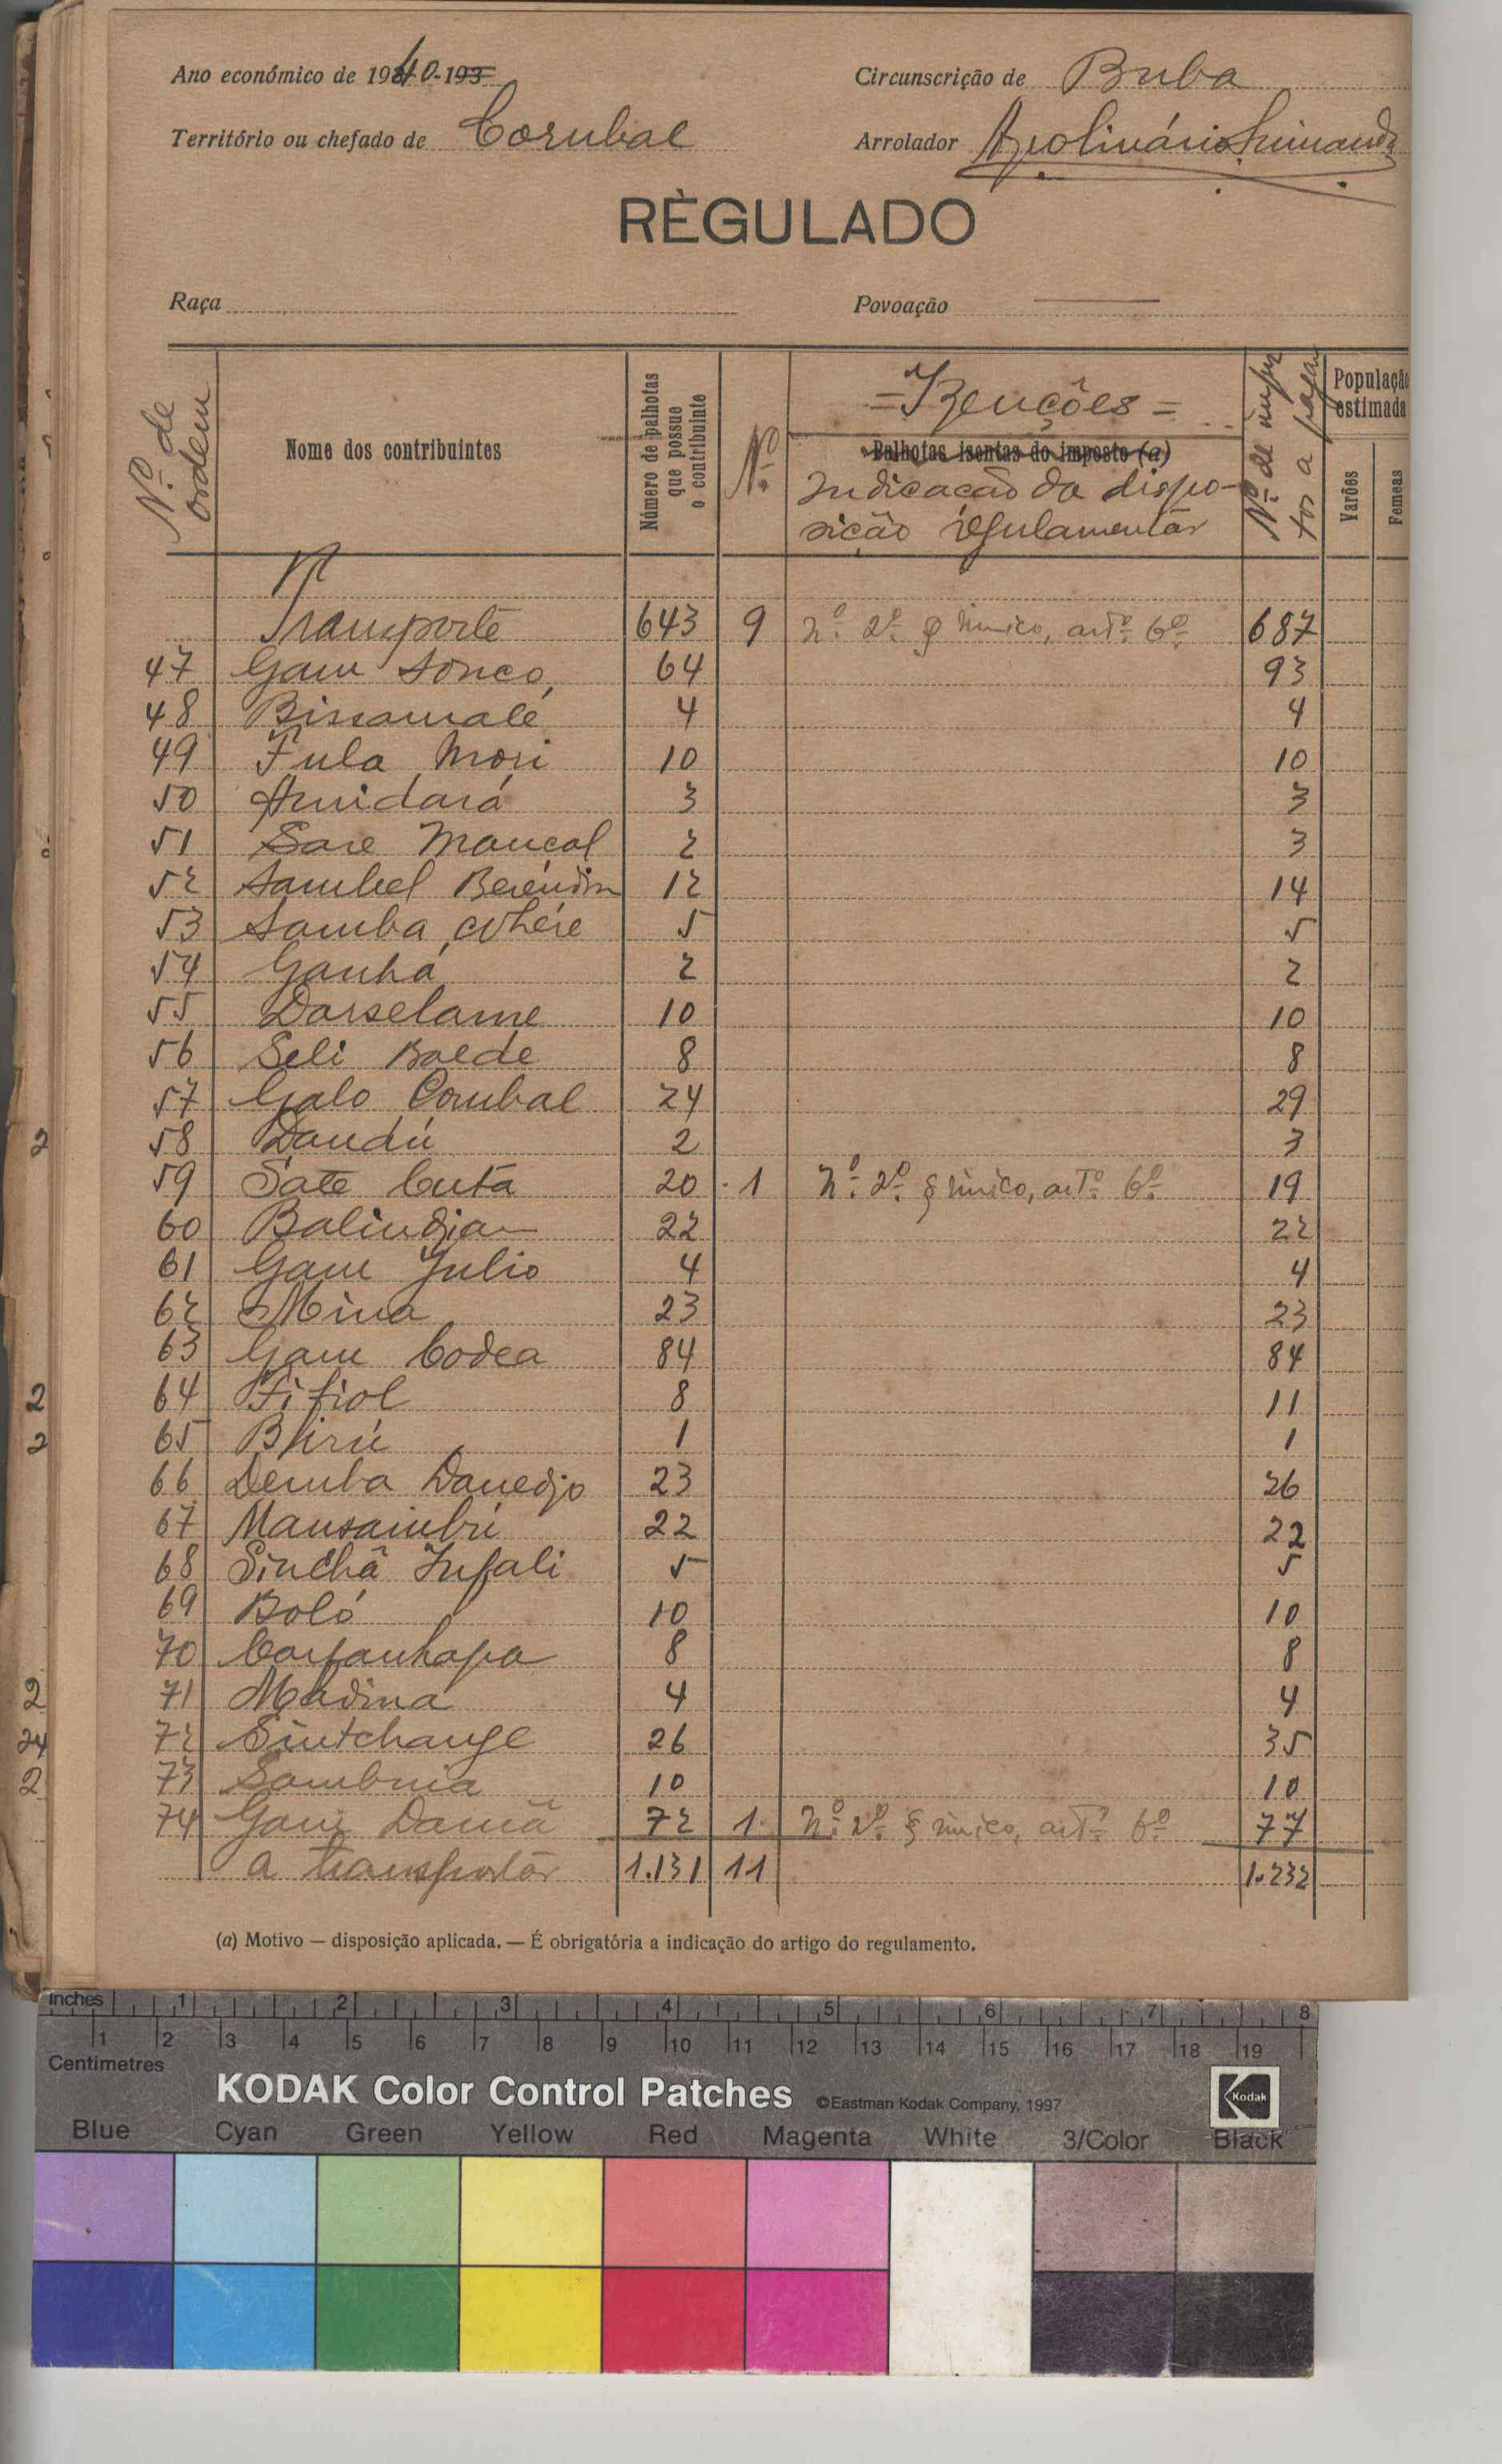 Ano económico de 1940-193
Circunscrição de Buba
Território ou chefado de Corubal
Arrolador Apolinário
RÈGULADO
Raça
Povoação
Nº de ordem
Nome dos contribuintes
Número de palhotas que possue o contribuinte
Nº
=Izenções=
Palhotas isentas do imposto (a)
Indicação da dispo-
sição regulamentar
Nº de impos
tos a pagar
População estimada
Varões
Femeas
Transporte 643 9 nº 2º § único, artº 6º 687
47 Gam Sonco 64 93
48 Bissamalé 4 4
49 Fula Mori 10 10
50 Amidará 3 3
51 Sare Mancal 2 3
52 Sambel Beréndim 12 14
53 Samba 5 5
54 Ganhá 2 2
55 Darselame 10 10
56 Seli Boede 8 8
57 Galo Corubal 24 29
58 Dandú 2 3
59 Sate Cuta 20 1 nº 2º § único, artº 6º 19
60 Balindjan 22 22
61 Gam Julio 4 4
62 Mina 23 23
63 Gam Codea 84 84
64 Fifiol 8 11
65 1 1
66 Demba Danedjo 23 26
67 Mansaimbri 22 22
68 Sinchã Infali 5 5
69 Boló 10 10
70 8 8
71 Madina 4 4
72 Sintchange 26 35
73 Sambuia 10 10
74 Gam Damã 72 1 nº 2º § único, artº 6º 77
a transportar 1.131 11 1.232
(a) Motivo — disposição aplicada. — É obrigatória a indicação do artigo do regulamento.
2
2
2
2
24
2
Inches 1 2 3 4 5 6 7 8
1 2 3 4 5 6 7 8 9 10 11 12 13 14 15 16 17 18 19
Centimetres
KODAK Color Control Patches ©Eastman Kodak Company, 1997 Kodak
Blue Cyan Green Yellow Red Magenta White 3/Color Black